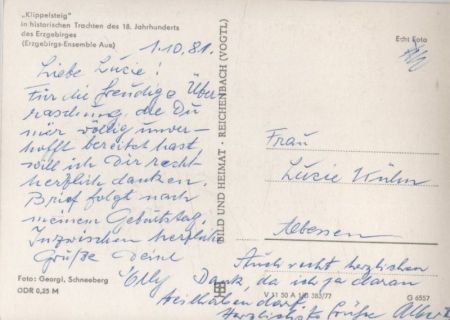 „Klippelsteig"
in historischen Trachten des 18. Jahrhunderts
des Erzgebirges
(Erzgebirgs-Ensemble Aue)
1.10.81.
Echt Foto
Liebe Luzie!
Für die freudige Über-
raschung, die Du
mir völlig unver-
hofft bereitet hast,
will ich Dir recht
herzlich danken.
Brief folgt nach
meinem Geburtstag.
Inzwischen herzliche
Grüße Deine
Elly
BILD UND HEIMAT · REICHENBACH (VOGTL)
Frau
Luzie Kühn
Auch recht herzlichen
Dank, da ich ja daran
teilhaben darf.
Herzlichste Grüße
Foto: Georgi, Schneeberg
DDR 0,25 M
V 11 50 A 1/B 383/77
G 6557